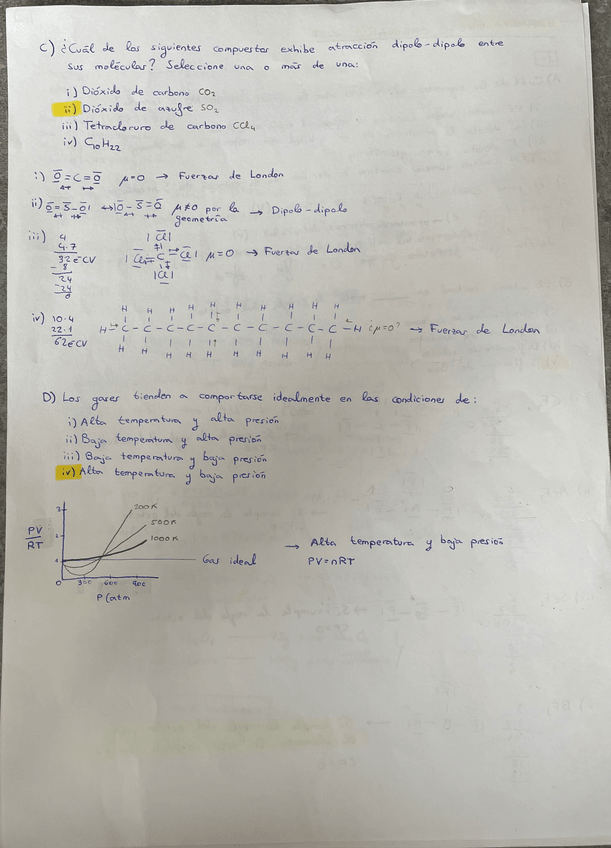 C) ¿Cuál de los siguientes compuestos exhibe atracción dipolo-dipolo entre
sus moléculas? Seleccione una o más de una:
i) Dióxido de carbono CO₂
ii) Dióxido de azufre SO₂
iii) Tetracloruro de carbono CCl₄
iv) C₁₀H₂₂
i) O=C=O μ=0 → Fuerzas de London
ii) O=S-O ↔ O-S=O μ≠0 por la geometría → Dipolo-dipolo
iii) 4
4·7
32 e⁻CV
-8
24
-24
0
Cl
Cl-C-Cl μ=0 → Fuerzas de London
Cl
iv) 10·4
22·1
62 e⁻CV
H H H H H H H H H H
H-C-C-C-C-C-C-C-C-C-C-H ¿μ=0? → Fuerzas de London
H H H H H H H H H H
D) Los gases tienden a comportarse idealmente en las condiciones de:
i) Alta temperatura y alta presión
ii) Baja temperatura y alta presión
iii) Baja temperatura y baja presión
iv) Alta temperatura y baja presión
PV
RT
200K
500K
1000K
Gas ideal
0 300 600 900
P(atm
→ Alta temperatura y baja presión
PV=nRT